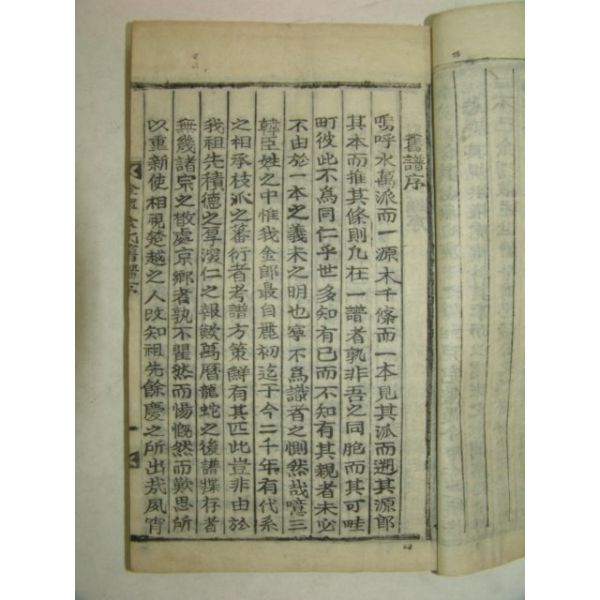 舊譜序
嗚呼水萬派而一源木千條而一本見其派而遡其源郎
其本而推其條則凡在一譜者孰非吾之同胞而其可畦
町彼此不爲同仁乎世多知有己而不知有其親者未必
不由於一本之義未之明也寧不爲識者之惻然哉噫三
韓臣姓之中惟我金郎最自麗初迄于今二千年有代系
之相承枝派之蕃衍者考譜方策鮮有其匹此豈非由於
我祖先積德之厚深仁之報歟萬曆龍蛇之後譜牒存者
無幾諸宗之散處京鄉者孰不瞿然而惕慨然而歎思所
以重新使相視楚越之人改知祖先餘慶之所出哉夙宵
氏舊譜序
一